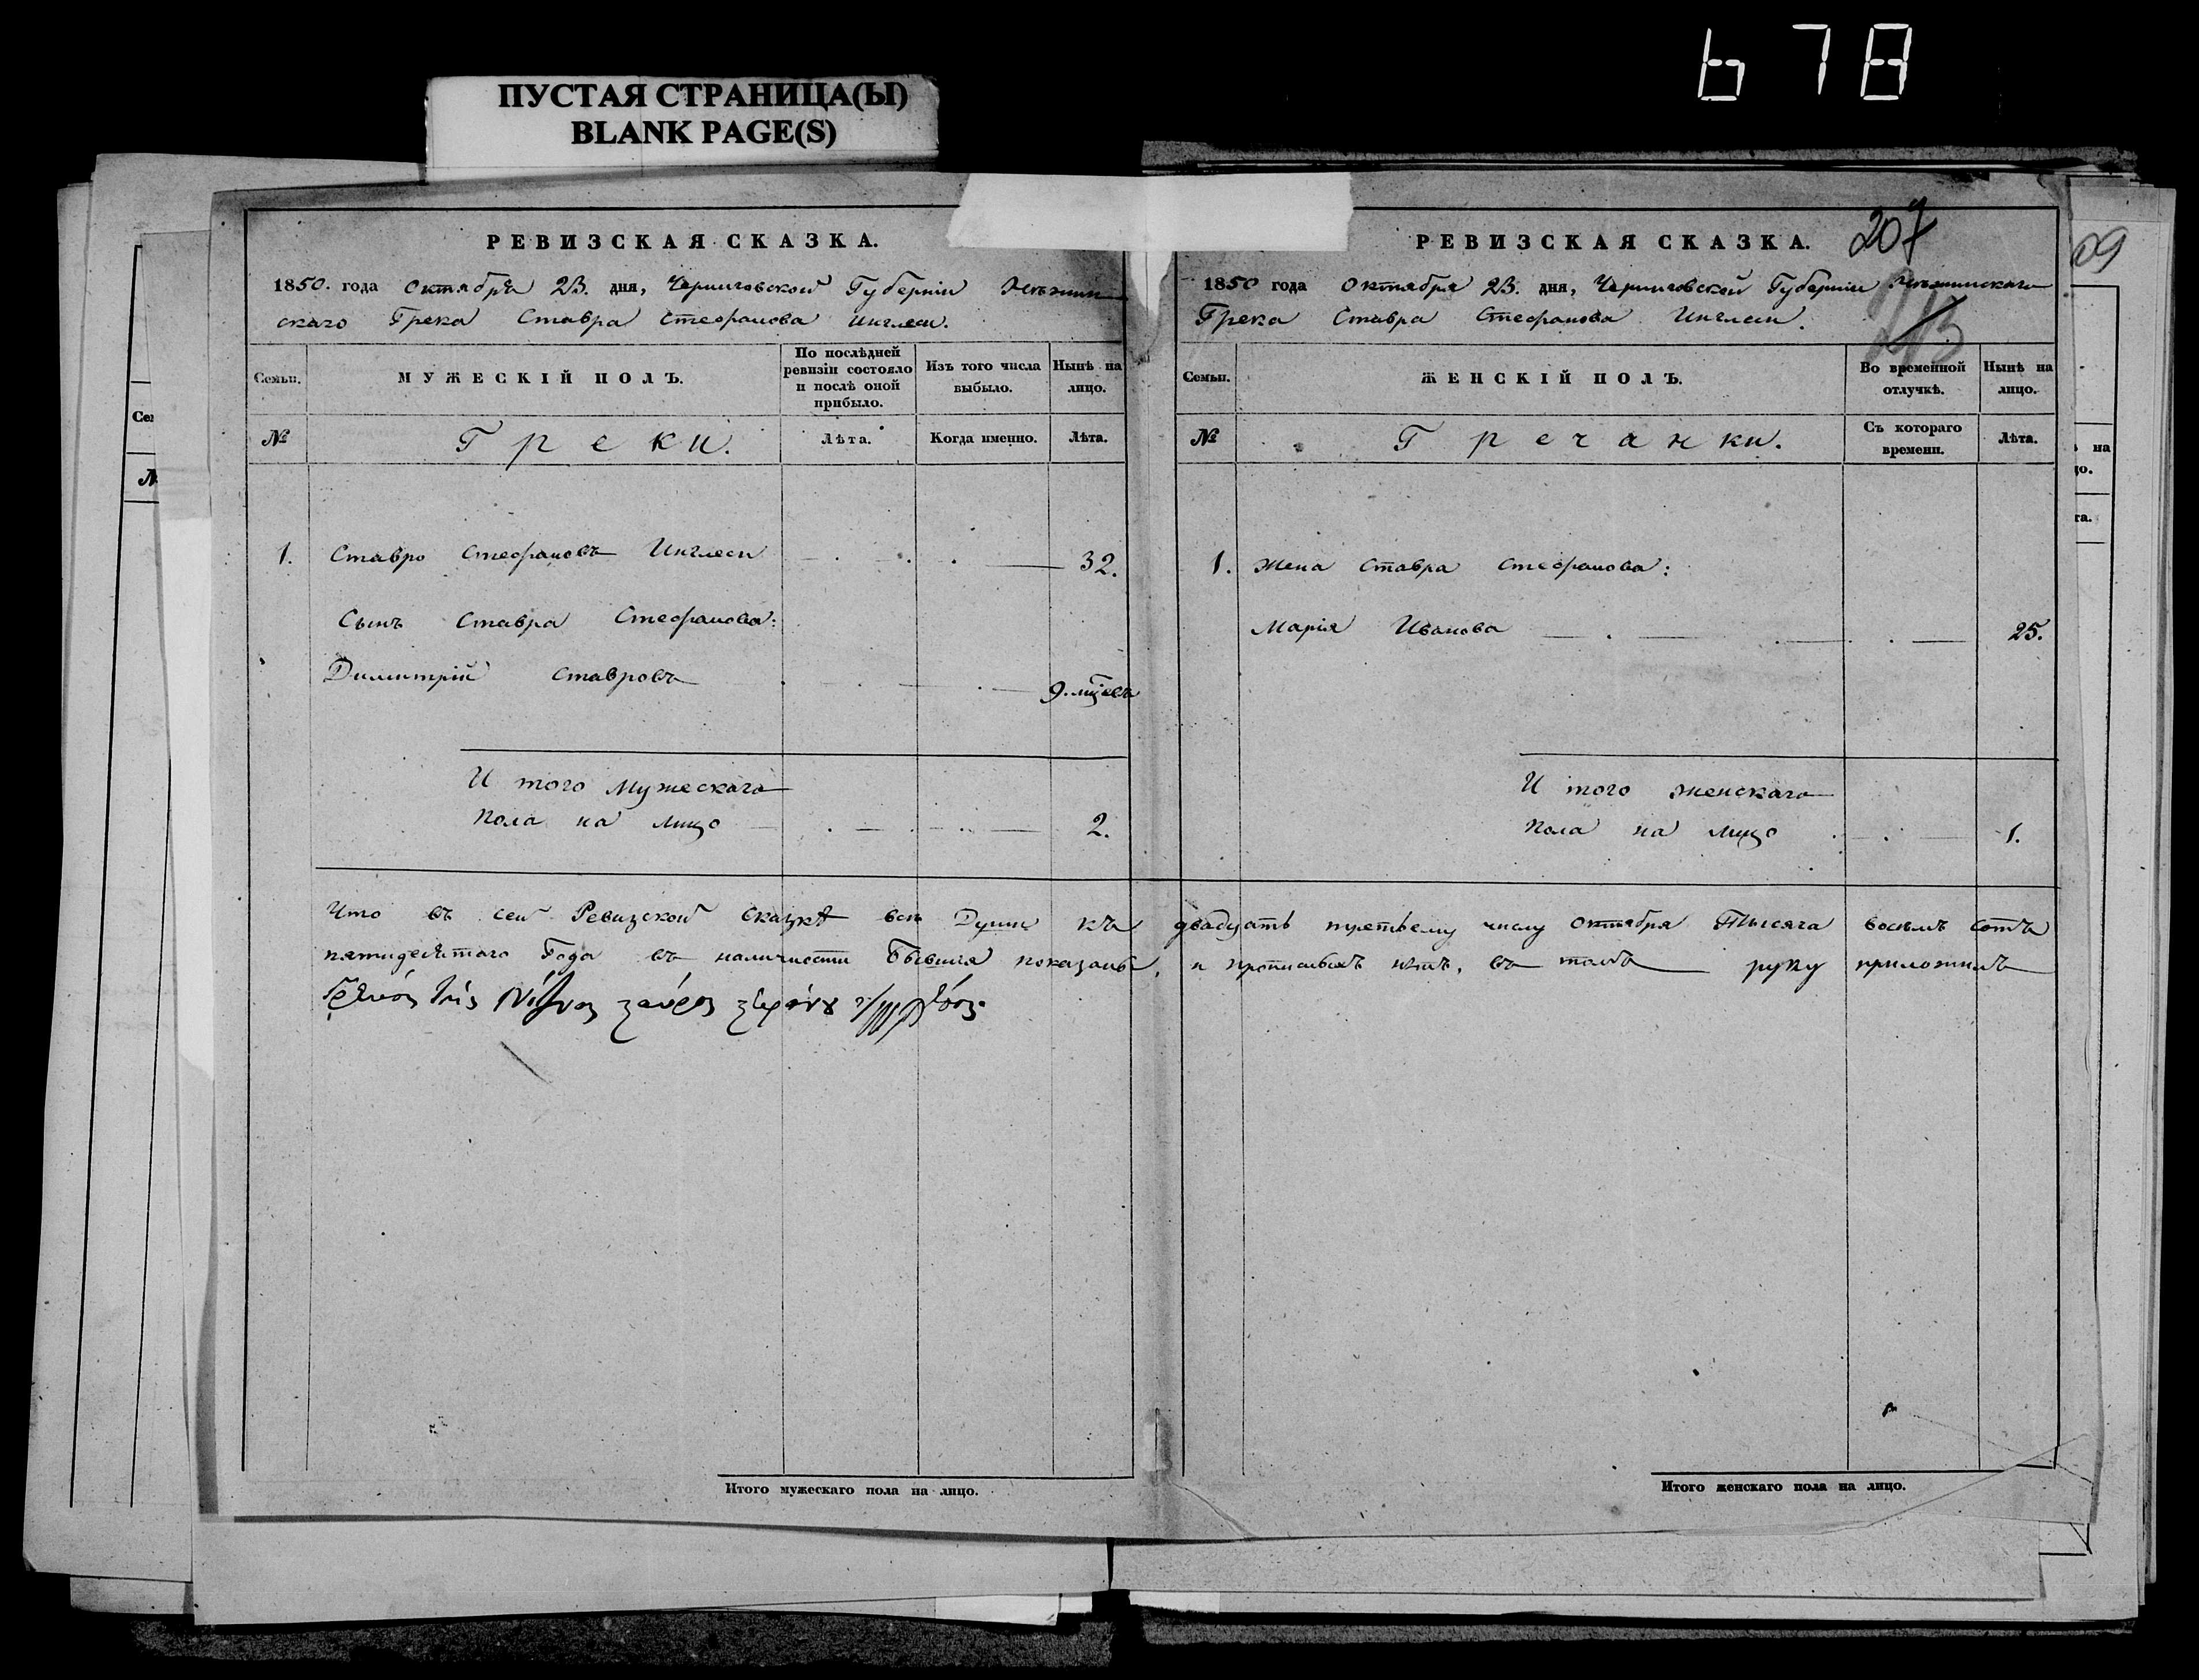 678
ПУСТАЯ СТРАНИЦА(Ы)
BLANK PAGE(S)
РЕВИЗСКАЯ СКАЗКА.
1850. года Октября 23. дня, Черниговской Губерніи Нѣжин
скаго Грека Ставра Стефанова Инглеси.
Семьи.
МУЖЕСКІЙ ПОЛЪ.
По послѣдней ревизіи состояло и послѣ оной прибыло.
Изъ того числа выбыло.
Нынѣ на лицо.
№
Греки.
Лѣта.
Когда именно.
Лѣта.
1. Ставро Стефановъ Инглеси 32.
Сынъ Ставра Стефанова:
Димитрій Ставровъ 9. мцовъ
И того Мужескаго
пола на лицо 2.
207
РЕВИЗСКАЯ СКАЗКА.
213
1850 года Октября 23. дня, Черниговской Губерніи Нѣжинскаго
Грека Ставра Стефанова Инглеси.
Семьи.
ЖЕНСКІЙ ПОЛЪ.
Во временной отлучкѣ.
Нынѣ на лицо.
№
Гречанки.
Съ котораго времени.
Лѣта.
1. Жена Ставра Стефанова:
Марія Иванова 25.
И того женскаго
пола на лицо 1.
Что въ сей Ревизской Сказкѣ всѣ Души къ двадцать третьему числу Октября Тысяча восемь сотъ
пятидесятого Года въ наличности Бывшія показаны, и прописныхъ нѣтъ, въ томъ руку приложилъ
Итого мужескаго пола на лицо.
Итого женскаго пола на лицо.
09
Сем
№
на
цо.
та.